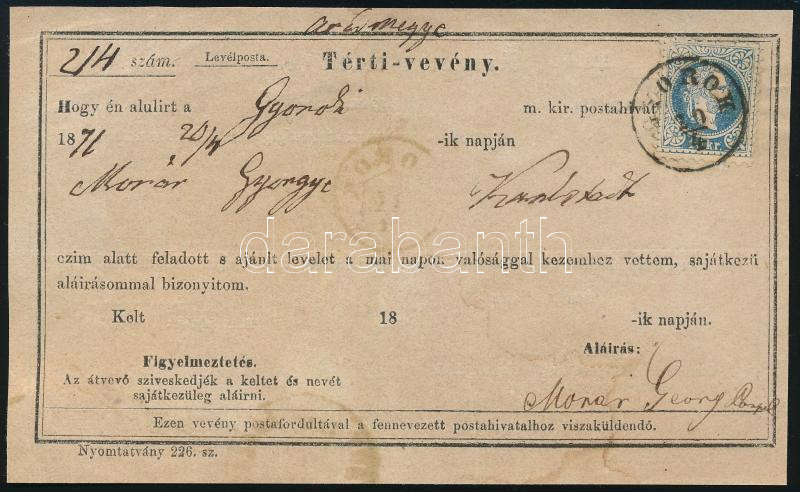 Arad megye
214 szám. Levélposta. Térti-vevény.
Hogy én alulirt a Gyoroki m. kir. postahivat
1871 20/4 -ik napján
Morár Gyorgye Karlstadt
czim alatt feladott s ajánlt levelet a mai napon valósággal kezemhez vettem, sajátkezü
aláirásommal bizonyitom.
Kelt 18 -ik napján.
Figyelmeztetés.
Az átvevő sziveskedjék a keltet és nevét
sajátkezüleg aláirni.
Aláirás:
Morár Georg
Ezen vevény postafordultával a fennevezett postahivatalhoz viszaküldendő.
Nyomtatvány 226. sz.
darabanth